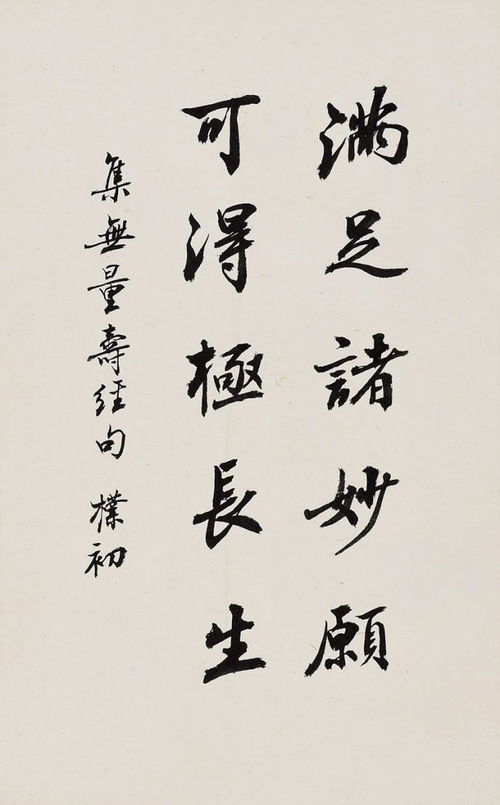 滿足諸妙願
可得極長生
集無量壽經句 樸初